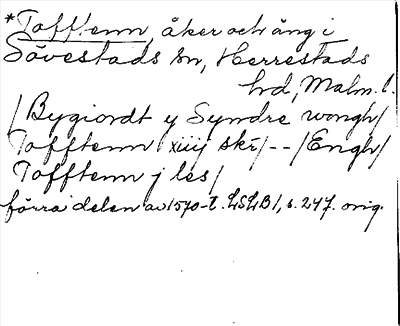 *Tofftenn, åker och äng i
Sövestads sn, Herrestads
hd, Malm. l.
/Bygiordt y Syndre wongh/
Tofftenn xiiij skr/--/Engh/
Tofftenn j les/
förra delen av 1570-t. LSLB1, s. 247. orig.